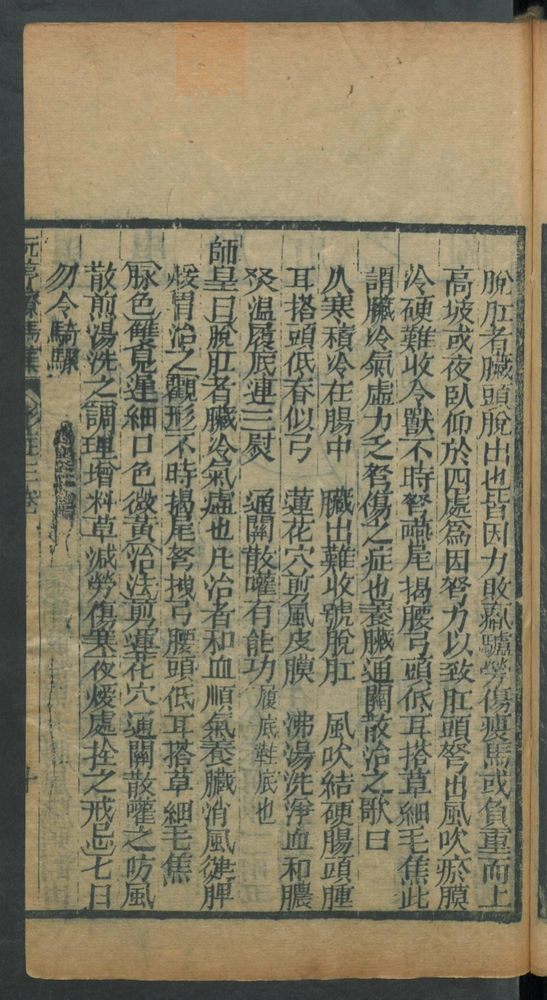 脫肛者臟頭脫出也皆因力敗羸驢勞傷瘦馬或負重而上
高坡或夜臥仰於凹處爲因努力以致肛頭努出風吹瘀膜
冷硬難收令獸不時努嚥尾揭腰弓頭低耳搭草細毛焦此
謂臟冷氣虛力乏努傷之症也養臟通關散治之歌曰
久寒積冷在腸中　臟出難收號脫肛　風吹結硬腸頭腫
耳搭頭低脊似弓　蓮花穴剪風皮膜　沸湯洗淨血和膿
炙温履底連三熨　通關散嚾有能功履底鞋底也
師皇曰脫肛者臟冷氣虛也凡治者和血順氣養臟消風健脾
煖胃治之觀形不時揭尾努拽弓腰頭低耳搭草細毛焦
脉色雙鳧遲細口色微黄治法剪蓮花穴通關散嚾之防風
散煎湯洗之調理增料草減勞傷寒夜煖處拴之戒忌七日
勿令騎驟
元亨療馬集　三卷